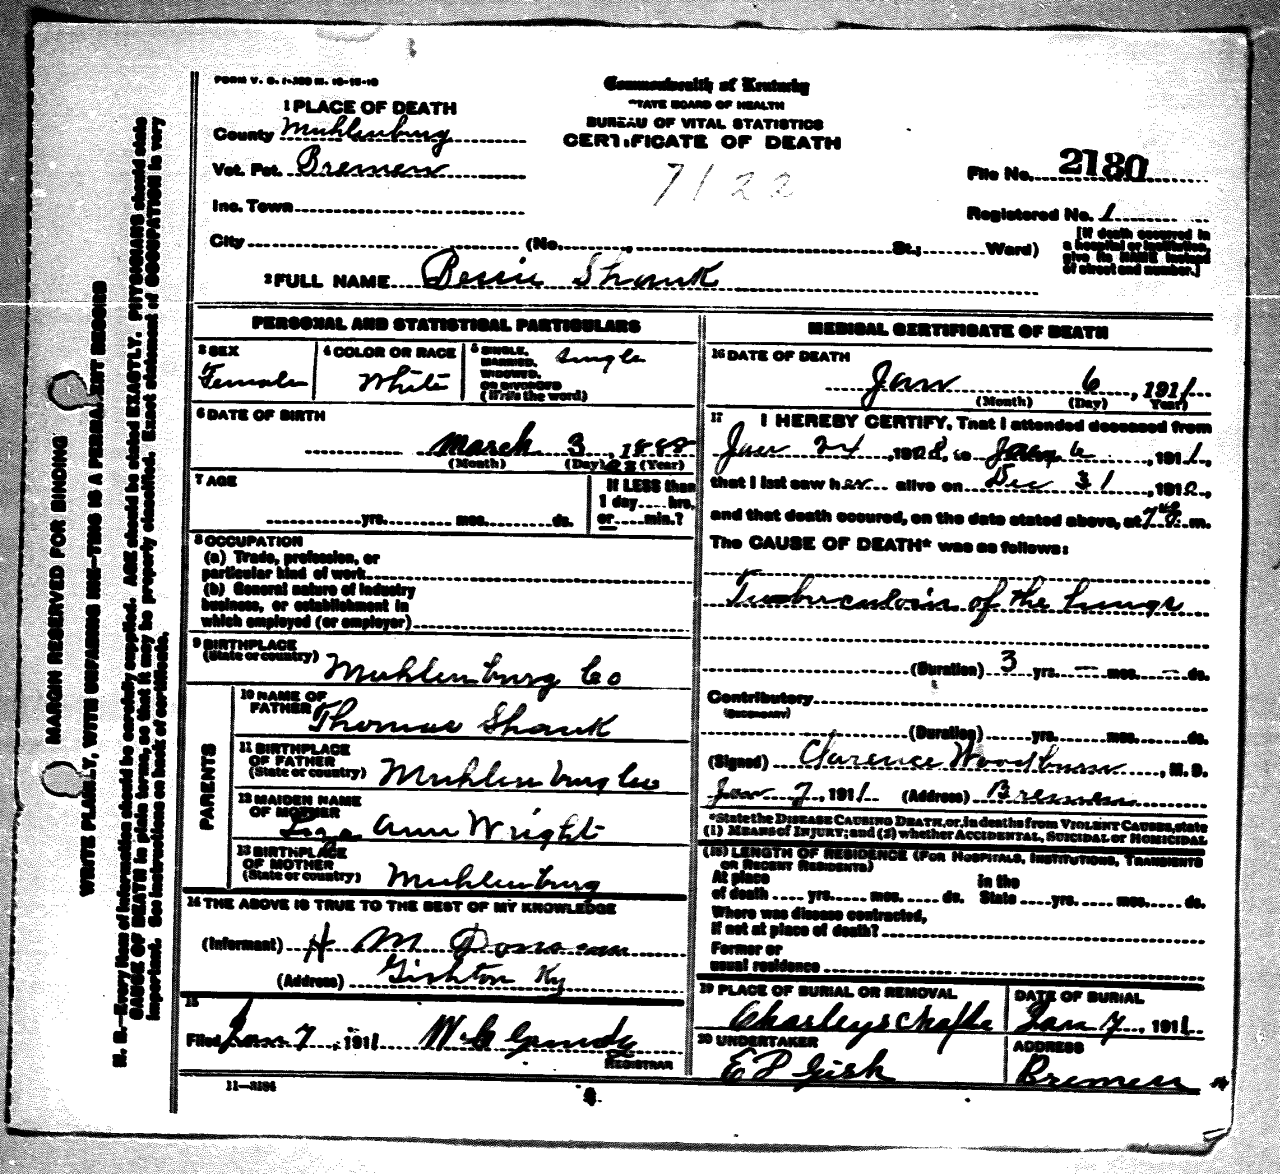 FORM V. S. 1-
Commonwealth of Kentucky
STATE BOARD OF HEALTH
BUREAU OF VITAL STATISTICS
CERTIFICATE OF DEATH
7122
1 PLACE OF DEATH
County Muhlenburg
Vot. Pct. Bremen
Inc. Town
City (No. , St.; Ward)
File No. 2180
Registered No. 1
[If death occurred in
a hospital or institution,
give its NAME instead
of street and number.]
2 FULL NAME Bessie Shank
PERSONAL AND STATISTICAL PARTICULARS
3 SEX
Female
4 COLOR OR RACE
White
5 SINGLE,
MARRIED,
WIDOWED,
OR DIVORCED
(Write the word)
Single
6 DATE OF BIRTH
March 3, 1888
(Month) (Day) (Year)
7 AGE
yrs. mos. ds.
If LESS than
1 day hrs.
or min.?
8 OCCUPATION
(a) Trade, profession, or
particular kind of work
(b) General nature of industry
business, or establishment in
which employed (or employer)
9 BIRTHPLACE
(State or country) Muhlenburg Co
PARENTS
10 NAME OF
FATHER Thomas Shank
11 BIRTHPLACE
OF FATHER
(State or country) Muhlenburg Co
12 MAIDEN NAME
OF MOTHER
Ann Wright
13 BIRTHPLACE
OF MOTHER
(State or country) Muhlenburg
14 THE ABOVE IS TRUE TO THE BEST OF MY KNOWLEDGE
(Informant) H M
(Address) Gishton Ky
15
Filed Jan 7, 1911 W. G Grundy
REGISTRAR
11-3184
MEDICAL CERTIFICATE OF DEATH
16 DATE OF DEATH
Jan 6, 1911
(Month) (Day) Year)
17 I HEREBY CERTIFY, That I attended deceased from
Jan 24, 1908, to Jany 6, 1911,
that I last saw her alive on Dec 31, 1910,
and that death occured, on the date stated above, at m.
The CAUSE OF DEATH* was as follows:
Tuberculosis of the Lungs
(Duration) 3 yrs. — mos. — ds.
Contributory
(SECONDARY)
(Duration) yrs. mos. ds.
(Signed) Clarence Woodburn, M. D.
Jan 7, 1911 (Address) Bremen
*State the DISEASE CAUSING DEATH, or, in deaths from VIOLENT CAUSES, state
(1) MEANS of INJURY; and (2) whether ACCIDENTAL, SUICIDAL or HOMICIDAL
(18) LENGTH OF RESIDENCE (FOR HOSPITALS, INSTITUTIONS, TRANSIENTS
OR RECENT RESIDENTS)
At place
of death yrs. mos. ds.
in the
State yrs. mos. ds.
Where was disease contracted,
if not at place of death?
Former or
usual residence
19 PLACE OF BURIAL OR REMOVAL
Charleys
DATE OF BURIAL
Jan 7, 1911
20 UNDERTAKER
E P Gish
ADDRESS
Bremen
MARGIN RESERVED FOR BINDING
WRITE PLAINLY, WITH UNFADING INK—THIS IS A PERMANENT RECORD
N. B.—Every item of information should be carefully supplied. AGE should be stated EXACTLY. PHYSICIANS should state
CAUSE OF DEATH in plain terms, so that it may be properly classified. Exact statement of OCCUPATION is very
important. See instructions on back of certificate.